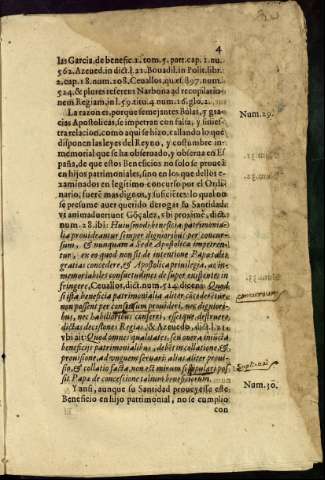 4
las Garcia, de benefic. 1. tom. 5. part. cap. 1. nu.
562. Azeued. in dict. l. 21. Bouadil. in Polit. libr.
2. cap. 18. num. 208. Ceuallos, quæst. 897. num.
524. & plures referens Narbona ad recopilatio-
nem Regiam, in l. 59. titu. 4 num. 16. glo. 2.
La razon es, porque semejantes Bulas, y gra-
Num. 29.
cias Apostolicas, se impetran con falsa, y sinies-
tra relacion, como aqui se hizo, callando lo que
disponen las leyes del Reyno, y costumbre in-
memorial que se ha obseruado, y obserua en Es-
paña, de que estos Beneficios no solo se prouean
en hijos patrimoniales, sino en los que dellos e-
xaminados en legitimo concurso por el Ordi-
nario, fuere mas dignos, y suficientes: lo qual no
se presume auer querido derogar su Santidad
vt animaduertunt Gõçalez, vbi proximè, dict.
num. 28. ibi: Huiusmodi beneficia patrimonia-
lia prouideantur semper digniori per concur-
sum, & nunquam à Sede Apostolica impetren-
tur, ex eo quod non sit de intentione Papæ tales
gratias concedere, & Apostolica priuilegia, ac in-
memoriabiles consuetudines de super existentes in-
fringere, Ceuallos, dict. num. 524. dicens: Quod
si ista beneficia patrimonialia aliter cõcederẽtur,
concursum
non possent per concursum prouideri, nec dignior-
ibus, nec habilioribus conferri, esset que destruere
dictas decisiones Regias, & Azeuedo, dict. l. 21.
vbi ait: Quod omnis qualitates, seu onera iniuncta
beneficijs patrimonialibus, debet in collatione, &
prouisione, ad vnguem seruari, alias aliter prouis-
sio, & collatio facta, non est mirum si
sit Papa de concesione talium beneficiorum.
Y ansi, aunque su Santidad prouezisse este
Num. 30.
Beneficio en hijo patrimonial, no se cumplio
con